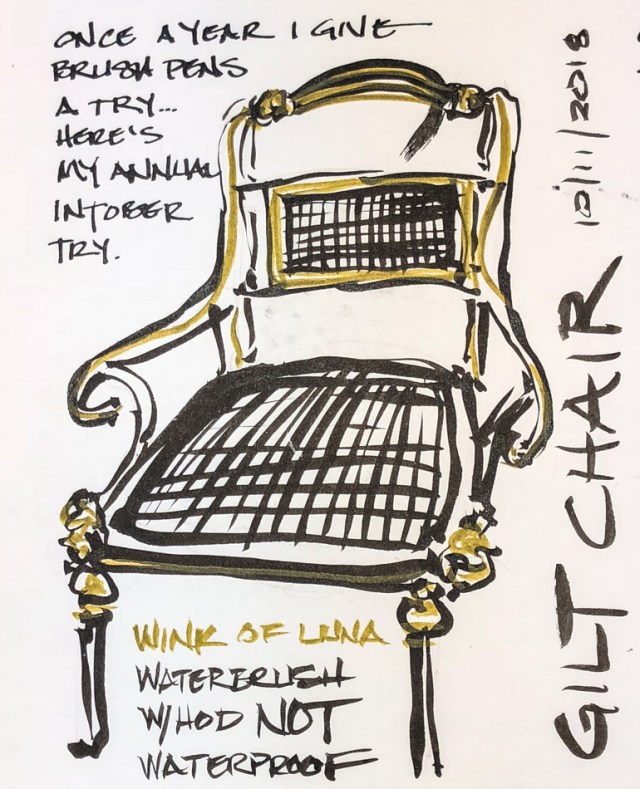 ONCE A YEAR I GIVE
BRUSH PENS
A TRY...
HERE'S
MY ANNUAL
INTOBER
TRY.
WINK OF LUNA
WATERBRUSH
W/HOD NOT
WATERPROOF
GILT CHAIR 10/11/2018